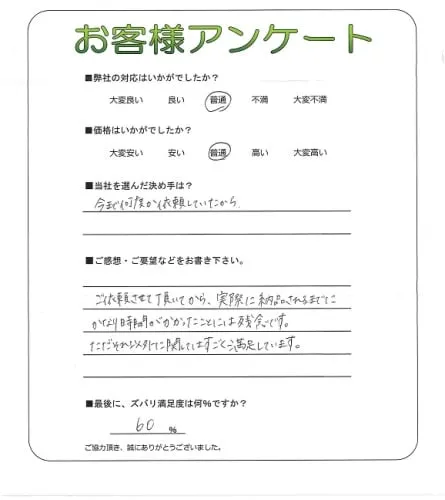 お客様アンケート
■弊社の対応はいかがでしたか?
大変良い 良い 普通 不満 大変不満
■価格はいかがでしたか?
大変安い 安い 普通 高い 大変高い
■当社を選んだ決め手は?
今まで何度か依頼していたから
■ご感想・ご要望などをお書き下さい。
ご依頼させて頂いてから、実際に納品されるまでに
かなり時間がかかったことには残念です。
ただそれ以外に関してはすごく満足しています。
■最後に、ズバリ満足度は何%ですか?
60 %
ご協力頂き、誠にありがとうございました。